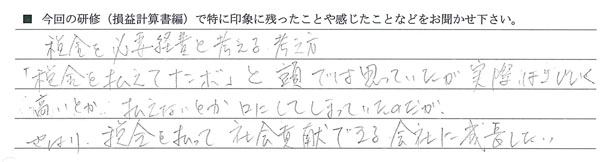 ■ 今回の研修（損益計算書編）で特に印象に残ったことや感じたことなどをお聞かせ下さい。
税金を必要経費と考える考え方
「税金を払えてナンボ」と頭では思っていたが実際は
高いとか、払えないとか口にしてしまっていたのだが、
やはり、税金を払って社会貢献できる会社に成長したい。